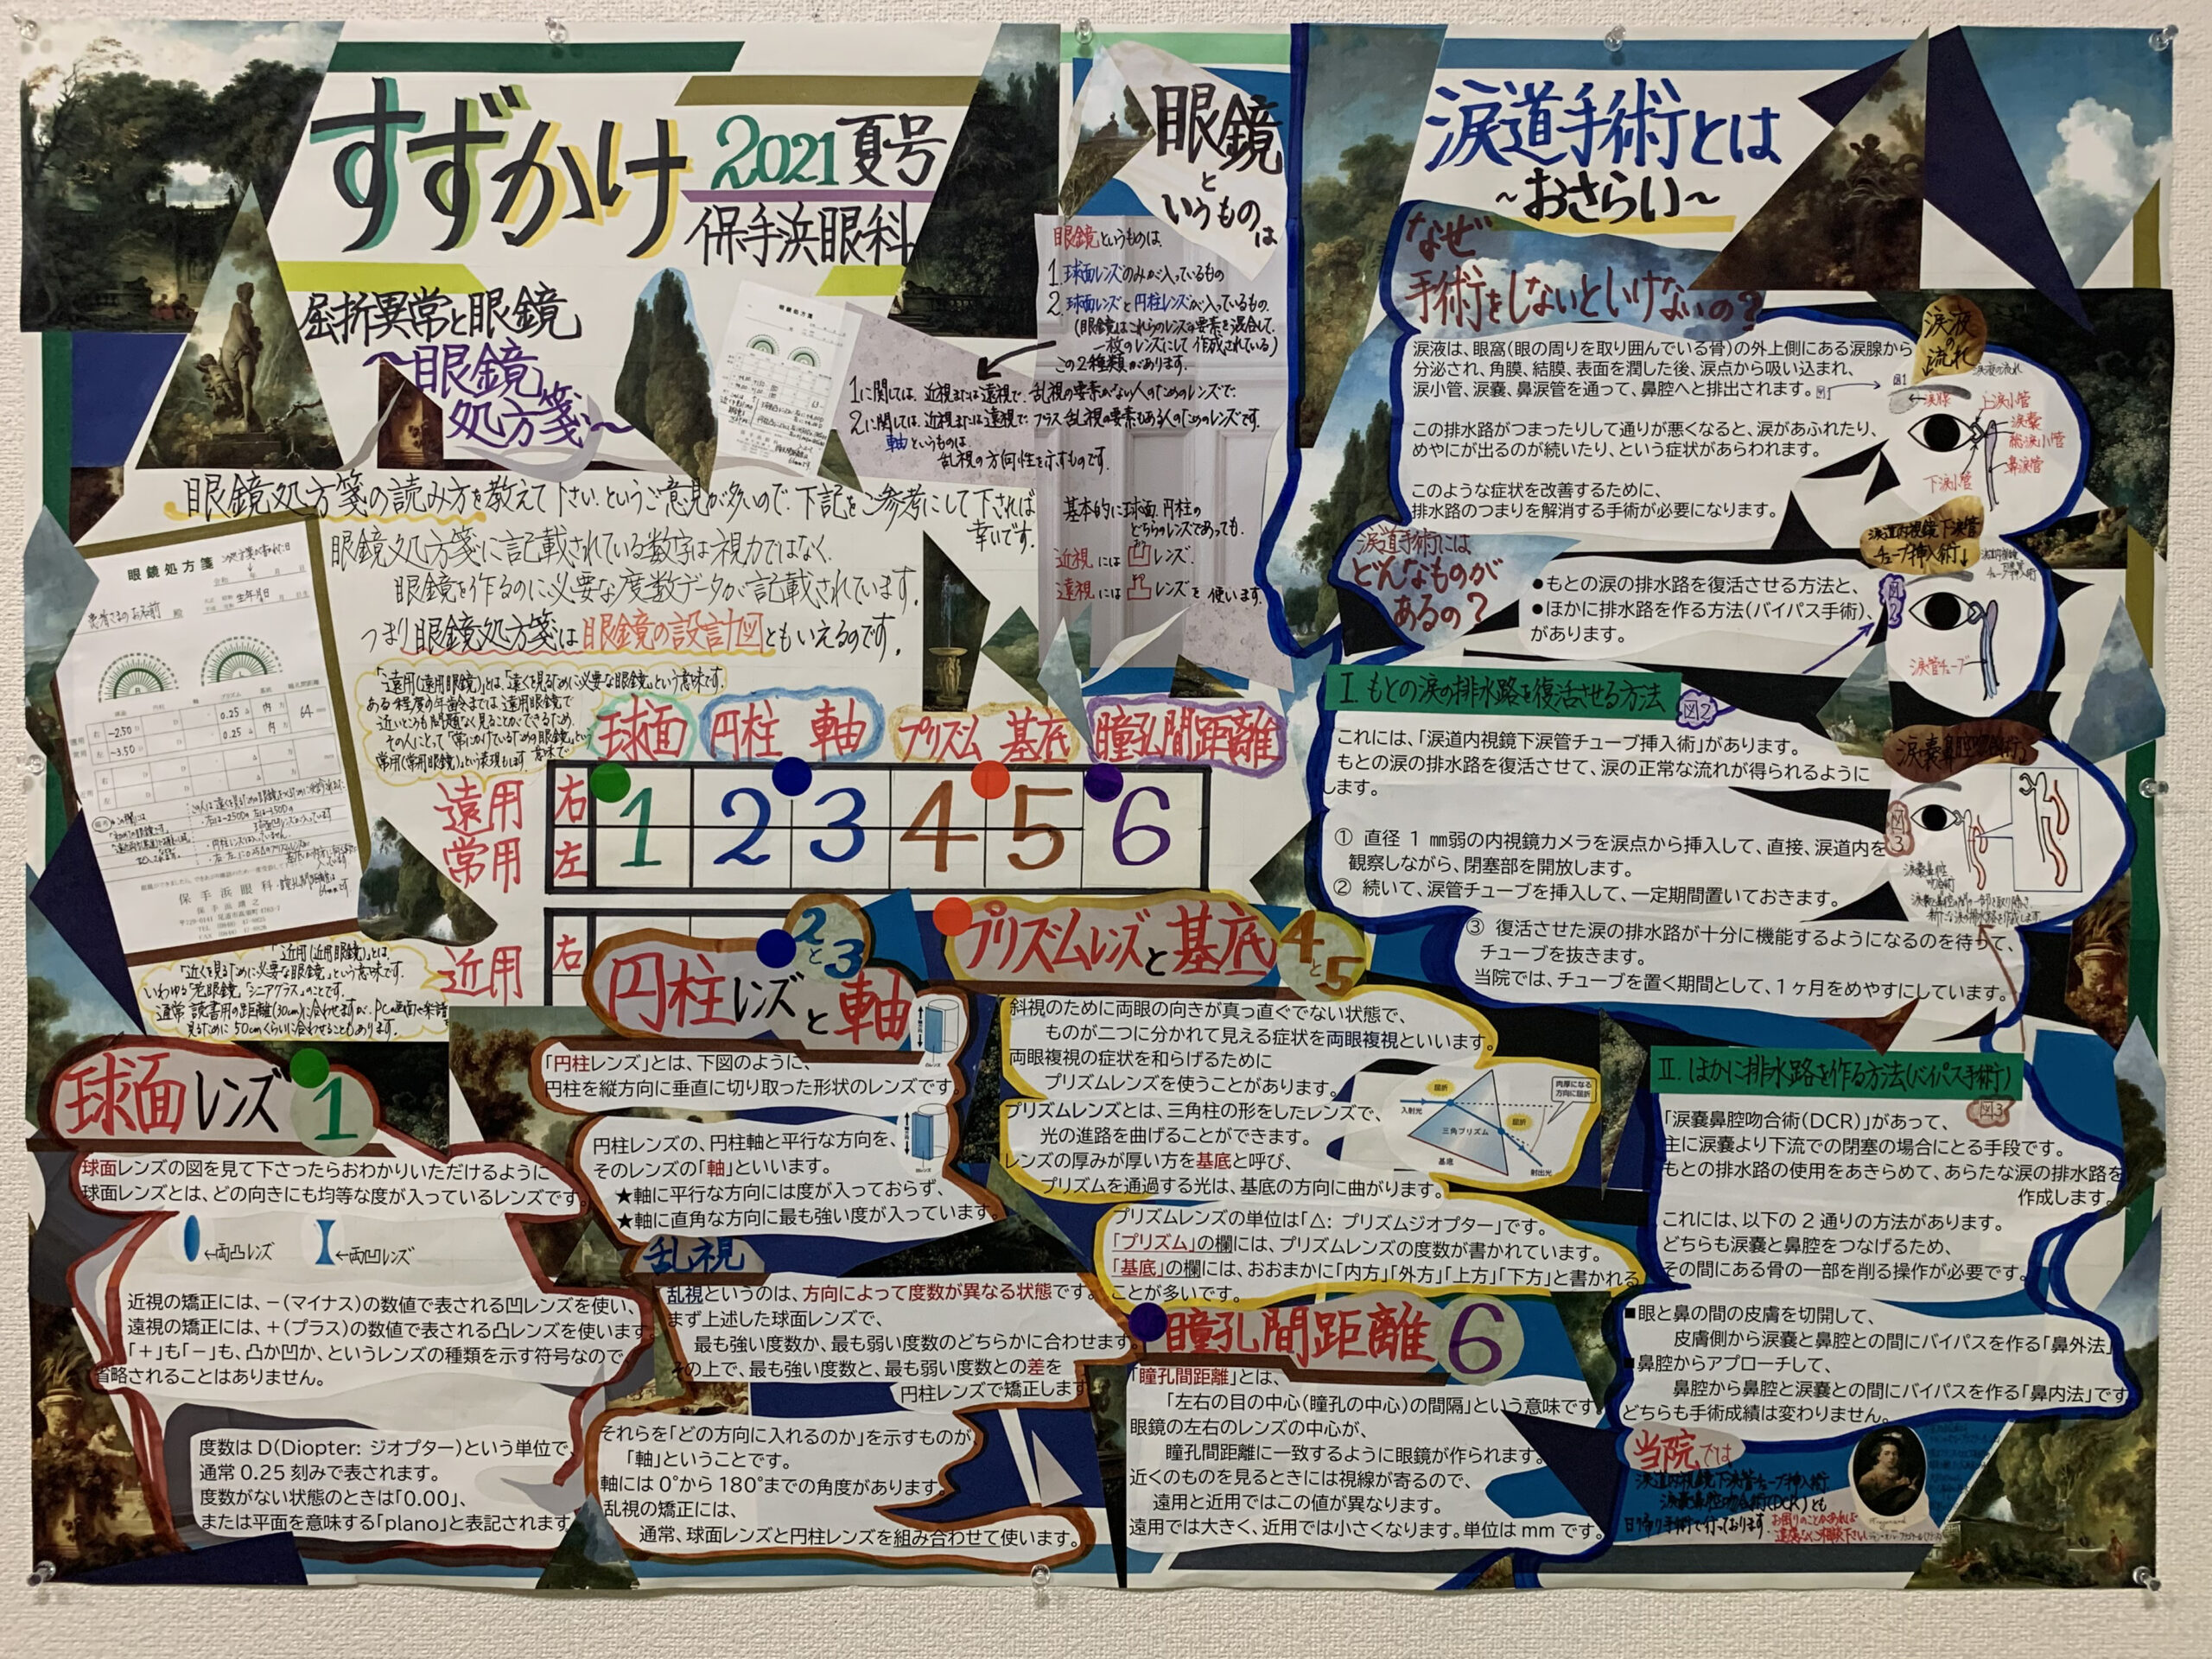 すずかけ
2021 夏号
保手浜眼科
屈折異常と眼鏡
〜眼鏡
処方箋〜
眼鏡処方箋の読み方を教えて下さい、というご意見が多いので、下記をご参考にして下されば
幸いです。
眼鏡処方箋に記載されている数字は視力ではなく、
眼鏡を作るのに必要な度数データが記載されています。
つまり眼鏡処方箋は眼鏡の設計図ともいえるのです。
眼鏡処方箋
患者さまのお名前 殿
生年月日
球面 円柱 軸 プリズム 基底 瞳孔間距離
右 -2.50 0.25 内 64
左 -3.50 0.25 内
保手浜眼科
「遠用(遠用眼鏡)」とは、「遠くを見るために必要な眼鏡」という意味です。
ある程度の年齢までは、遠用眼鏡で
近いところも問題なく見ることができるため、
その人にとって「常にかけているための眼鏡」という
意味で
常用(常用眼鏡)という表現もします。
球面 円柱 軸 プリズム 基底 瞳孔間距離
遠用
常用
右
左
1 2 3 4 5 6
近用
右
「近用(近用眼鏡)」とは、
「近くを見るために必要な眼鏡」という意味です。
いわゆる「老眼鏡」「シニアグラス」のことです。
通常 読書用の距離(30cm)に合わせますが、PCの画面や楽譜を
見るために 50cmくらいに合わせることもあります。
眼鏡
と
いうもの
は
眼鏡というものは、
1. 球面レンズのみが入っているもの
2. 球面レンズと円柱レンズが入っているもの
(眼鏡はこれらのレンズの要素を混合して、
一枚のレンズにして作成されている)
この2種類があります。
1に関しては、近視または遠視で、乱視の要素がない人のためのレンズで、
2に関しては、近視または遠視で、プラス乱視の要素もある人のためのレンズです。
軸というものは、
乱視の方向性を示すものです。
基本的に球面、円柱の
どちらのレンズであっても、
近視には凹レンズ、
遠視には凸レンズを使います。
球面レンズ 1
球面レンズの図を見て下さったらおわかりいただけるように
球面レンズとは、どの向きにも均等な度が入っているレンズです。
←両凸レンズ ←両凹レンズ
近視の矯正には、−(マイナス)の数値で表される凹レンズを使い、
遠視の矯正には、+(プラス)の数値で表される凸レンズを使います。
「+」も「−」も、凸か凹か、というレンズの種類を示す符号なので、
省略されることはありません。
度数は D(Diopter: ジオプター)という単位で、
通常 0.25 刻みで表されます。
度数がない状態のときは「0.00」、
または平面を意味する「plano」と表記されます
円柱レンズと軸
2と3
「円柱レンズ」とは、下図のように、
円柱を縦方向に垂直に切り取った形状のレンズです。
円柱レンズの、円柱軸と平行な方向を、
そのレンズの「軸」といいます。
★軸に平行な方向には度が入っておらず、
★軸に直角な方向に最も強い度が入っています。
乱視
乱視というのは、方向によって度数が異なる状態です。
まず上述した球面レンズで、
最も強い度数か、最も弱い度数のどちらかに合わせます。
その上で、最も強い度数と、最も弱い度数との差を
円柱レンズで矯正します
それらを「どの方向に入れるのか」を示すものが、
「軸」ということです。
軸には 0°から 180°までの角度があります。
乱視の矯正には、
通常、球面レンズと円柱レンズを組み合わせて使います。
プリズムレンズと基底
4と5
斜視のために両眼の向きが真っ直ぐでない状態で、
ものが二つに分かれて見える症状を両眼複視といいます。
両眼複視の症状を和らげるために
プリズムレンズを使うことがあります。
プリズムレンズとは、三角柱の形をしたレンズで、
光の進路を曲げることができます。
レンズの厚みが厚い方を基底と呼び、
プリズムを通過する光は、基底の方向に曲がります。
入射光
屈折
三角プリズム
屈折
基底
射出光
肉厚になる
方向に屈折
プリズムレンズの単位は「△: プリズムジオプター」です。
「プリズム」の欄には、プリズムレンズの度数が書かれています。
「基底」の欄には、おおまかに「内方」「外方」「上方」「下方」と書かれる
ことが多いです。
瞳孔間距離 6
「瞳孔間距離」とは、
「左右の目の中心(瞳孔の中心)の間隔」という意味です。
眼鏡の左右のレンズの中心が、
瞳孔間距離に一致するように眼鏡が作られます。
近くのものを見るときには視線が寄るので、
遠用と近用ではこの値が異なります。
遠用では大きく、近用では小さくなります。単位は mm です。
涙道手術とは
〜おさらい〜
なぜ
手術をしないといけないの?
涙液は、眼窩(眼の周りを取り囲んでいる骨)の外上側にある涙腺から
分泌され、角膜、結膜、表面を潤した後、涙点から吸い込まれ、
涙小管、涙嚢、鼻涙管を通って、鼻腔へと排出されます。図1
この排水路がつまったりして通りが悪くなると、涙があふれたり、
めやにが出るのが続いたり、という症状があらわれます。
このような症状を改善するために、
排水路のつまりを解消する手術が必要になります。
涙液の流れ
図1
涙腺
上涙小管
涙嚢
総涙小管
鼻涙管
下涙小管
涙道手術には
どんなものが
あるの?
●もとの涙の排水路を復活させる方法と、
●ほかに排水路を作る方法(バイパス手術)、
があります。
涙道内視鏡下涙管
チューブ挿入術↓
図2
涙管チューブ
I. もとの涙の排水路を復活させる方法
図2
これには、「涙道内視鏡下涙管チューブ挿入術」があります。
もとの涙の排水路を復活させて、涙の正常な流れが得られるように
します。
① 直径 1 mm弱の内視鏡カメラを涙点から挿入して、直接、涙道内を
観察しながら、閉塞部を開放します。
② 続いて、涙管チューブを挿入して、一定期間置いておきます。
③ 復活させた涙の排水路が十分に機能するようになるのを待って、
チューブを抜きます。
当院では、チューブを置く期間として、1ヶ月をめやすにしています。
涙嚢鼻腔吻合術
図3
涙嚢鼻腔
吻合術
II. ほかに排水路を作る方法(バイパス手術)
図3
「涙嚢鼻腔吻合術(DCR)」があって、
主に涙嚢より下流での閉塞の場合にとる手段です。
もとの排水路の使用をあきらめて、あらたな涙の排水路を
作成します。
これには、以下の 2 通りの方法があります。
どちらも涙嚢と鼻腔をつなげるため、
その間にある骨の一部を削る操作が必要です。
■眼と鼻の間の皮膚を切開して、
皮膚側から涙嚢と鼻腔との間にバイパスを作る「鼻外法」
■鼻腔からアプローチして、
鼻腔から鼻腔と涙嚢との間にバイパスを作る「鼻内法」です
どちらも手術成績は変わりません。
当院では
涙道内視鏡下涙管チューブ挿入術
涙嚢鼻腔吻合術(DCR)とも
日帰り手術で行っております。
お困りのことがあれば
遠慮なくご相談下さい。